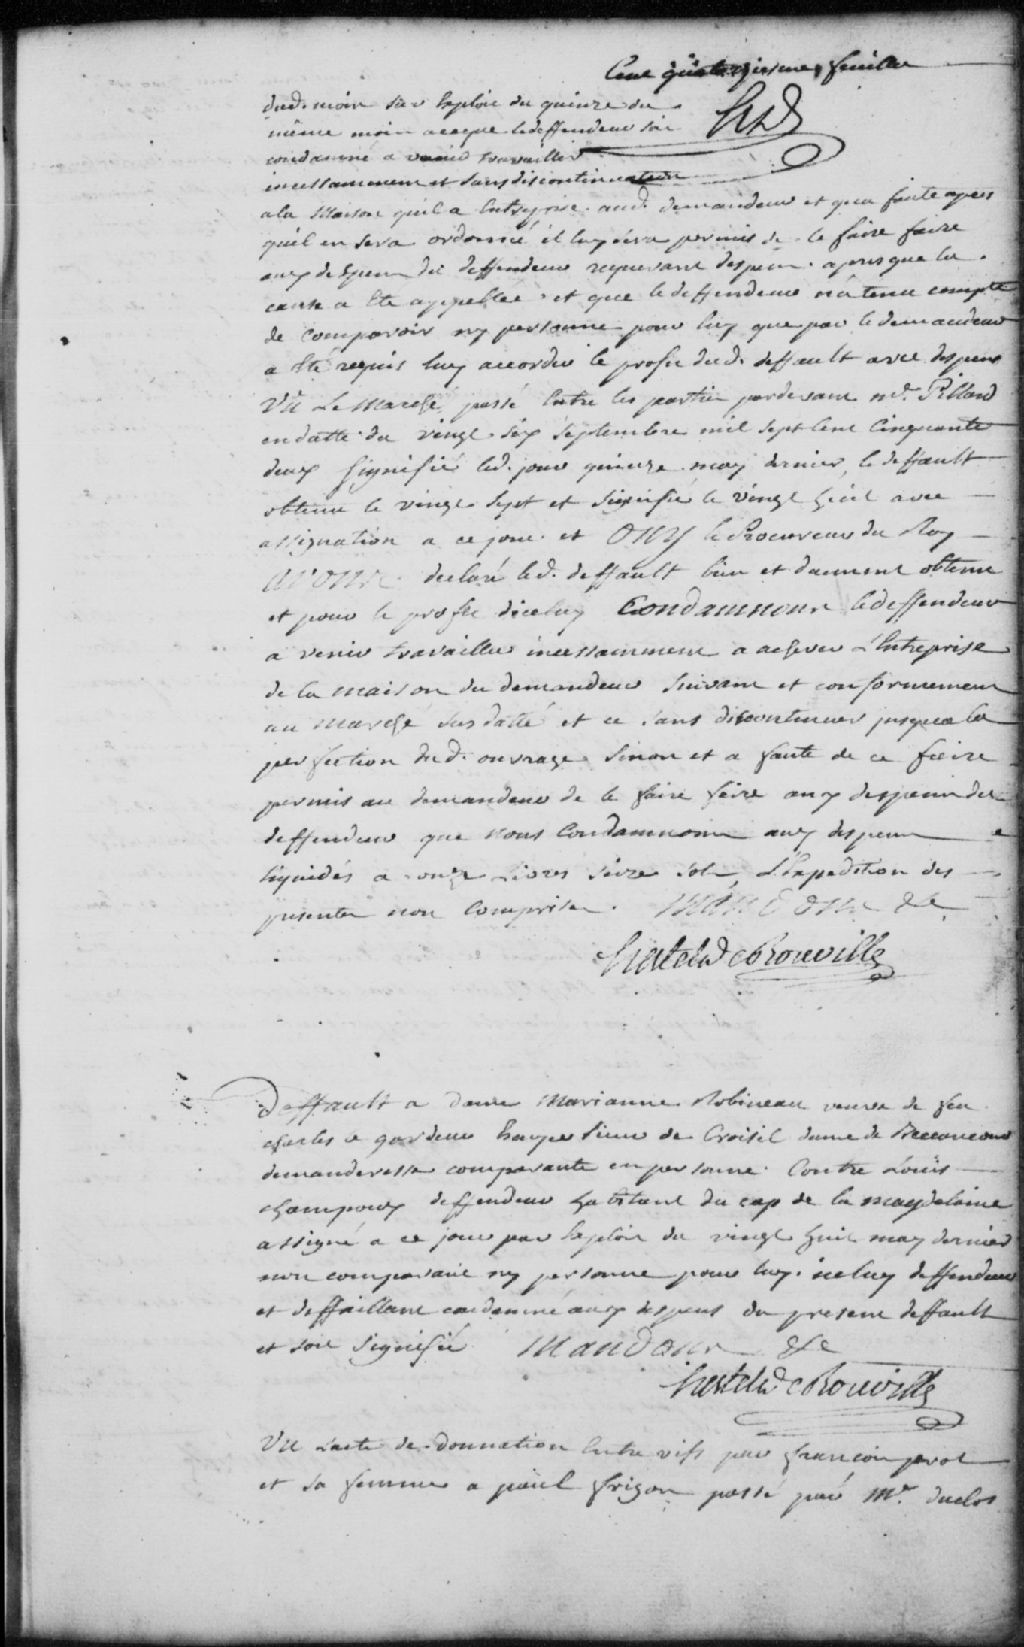 Cent quatorzieme feuillet
dud. mois par Exploit du quinze du
même mois aceque ledeffendeur soit
condamné a venir travailler
incessamment et sans discontinuation
ala Maison qu'il a Entreprise aud. demandeur et qua faute apres
quil en sera ordonné, il luy sera permis de le faire faire
aux depens du deffendeur requerant depens. apres que la
cause a Eté appellée et que le deffendeur n'a tenu compte
de comparoir ny personne pour luy que par le demandeur
a été requis luy accorder le profit dud. deffault avec depens
Vû Le Marché passé Entre les parties pardevant me. Pillard
en datte du vingt six septembre mil sept Cent Cinquante
deux signifié led. jour quinze may dernier, le deffault
obtenu le vingt sept et signifié le vingt huit avec
assignation a ce jour et OUY le Procureur du Roy
AVONS declaré led. deffault bien et duement obtenu
et pour le profit diceluy Condamnons ledeffendeur
a venir travailler incessamment a achever L'Entreprise
de la maison du demandeur suivant et conformement
au marché susdatté et ce sans discontinuer jusqua la
perfection dud. ouvrage Sinon et a faute de ce faire
permis au demandeur de le faire faire aux despens du
deffendeur que nous Condamnons aux despens
liquidés a onze Livres seize sols, L'Expedition des
presentes non Comprise. MANDONS &c
hertel de Rouville
Deffault a dame Marianne Robineau veuve de feu
charles le gardeur Ecuyer sieur de Croisil dame de Beccancour
demanderesse comparante en personne. Contre Louïs
champoux deffendeur habitant du cap de la magdelaine
assigné a ce jour par Exploit du vingt huit may dernier
non comparant ny personne pour luy. iceluy deffendeur
et deffaillant condamné aux despens du present deffault
et soit signifié Mandons &c
hertel de Rouville
Vû Lacte de donnation Entre vifs par françois
et sa femme a paul frigon passé par Me. duclos